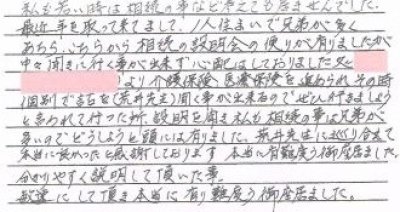 私も若い時は相続の事など考えても居ませんでした。
最近年を取って来てまして、1人住まいで兄弟が多く
あちらこちらから相続の説明会の便りが有りましたが
中々聞きに行く事が出来ず心配はしておりました
より介護保険 医療保険を進められ その時
個別で話を(荒井先生)聞く事が出来るのでぜひ行きましよう
と言われて行った所 説明を聞き私も相続の事は兄弟が
多いのでどうしようと頭には有りました。荒井先生にめぐり合えて
本当に良かったと感謝しております 本当に有難度う御座居ました。
分かりやすく説明して頂いた事。
敏速にして頂き本当に有り難度う御座居ました。